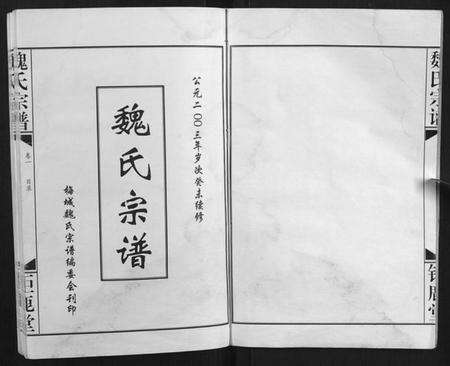 公元二〇〇三年岁次癸未续修
魏氏宗谱
梅城魏氏宗谱编委会刊印
魏氏宗谱
卷一
目录
巨鹿堂
魏氏宗谱